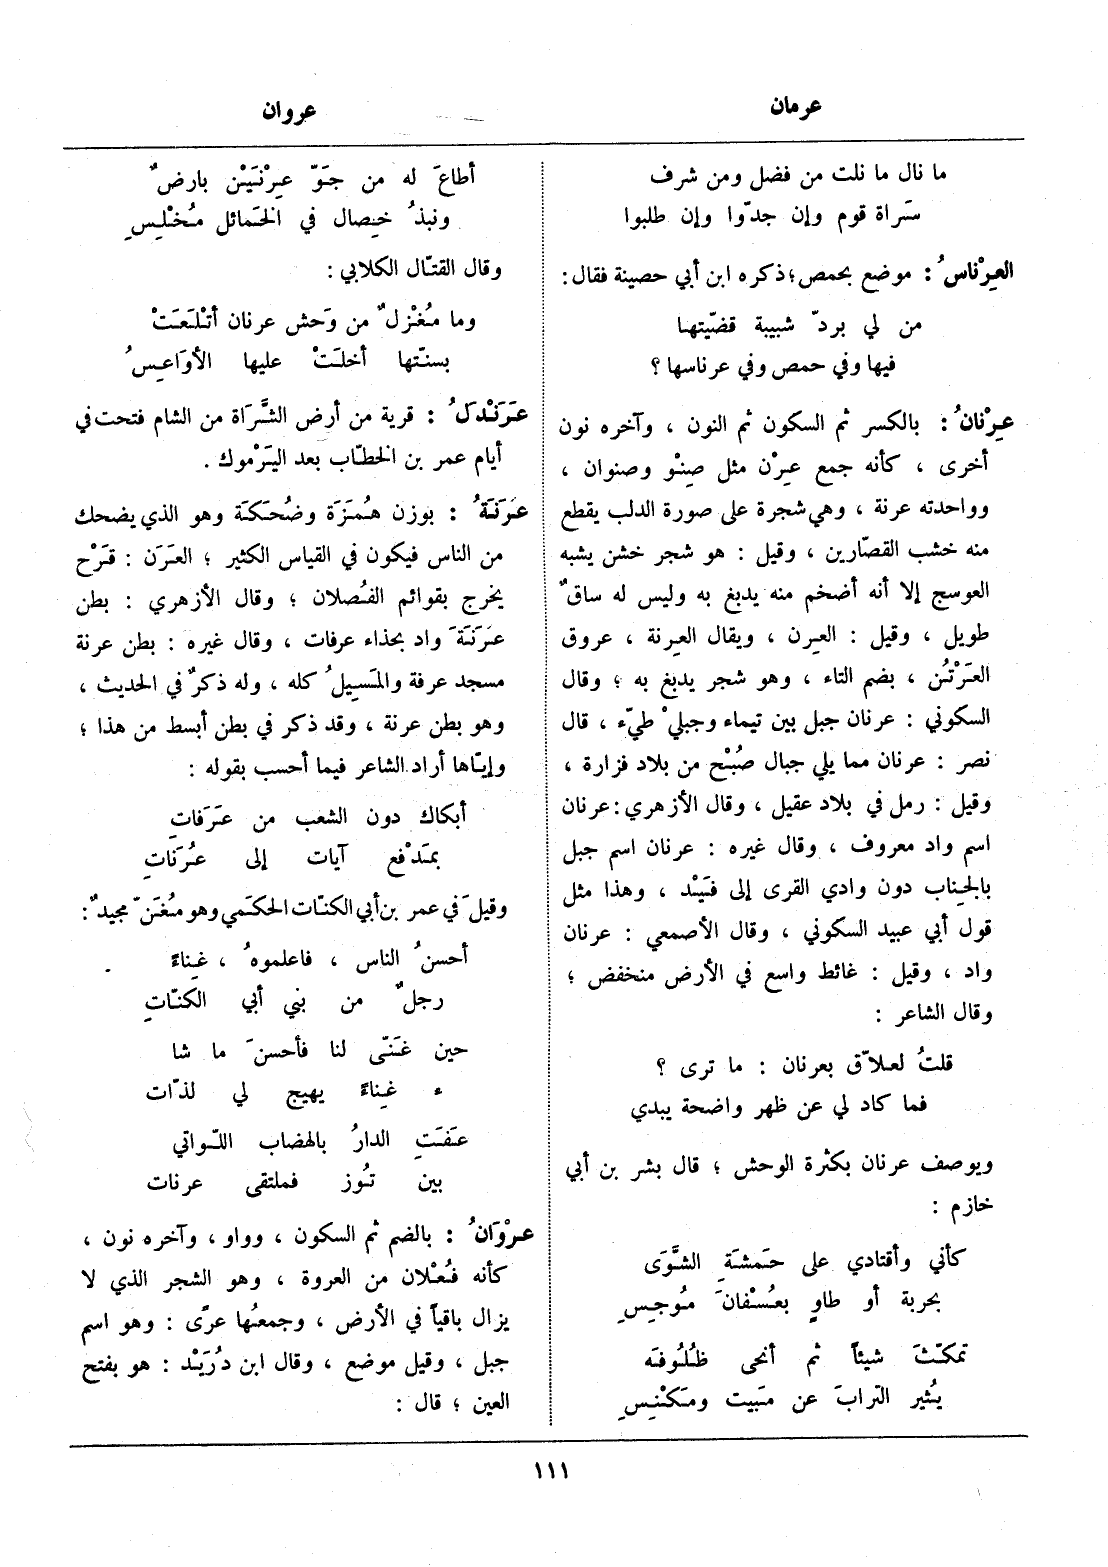 عرمان
عروان
ما نال ما نلت من فضل ومن شرف
سَراة قوم وإن جدّوا وإن طلبوا
العِرْناسُ : موضع بحمص ؛ ذكره ابن أبي حصينة فقال :
من لي بردّ شبيبة قضّيتها
فيها وفي حمص وفي عرناسها ؟
عِرْنانُ : بالكسر ثم السكون ثم النون ، وآخره نون
أخرى ، كأنه جمع عِرْن مثل صِنْو وصنوان ،
وواحدته عرنة ، وهي شجرة على صورة الدلب يقطع
منه خشب القصّارين ، وقيل : هو شجر خشن يشبه
العوسج إلا أنه أضخم منه يدبغ به وليس له ساقٌ
طويل ، وقيل : العِرن ، ويقال العِرنة ، عروق
العَرْتُن ، بضم التاء ، وهو شجر يدبغ به ؛ وقال
السكوني : عرنان جبل بين تيماء وجبليْ طيّء ، قال
نصر : عرنان مما يلي جبال صُبْح من بلاد فزارة ،
وقيل : رمل في بلاد عقيل ، وقال الأزهري : عرنان
اسم واد معروف ، وقال غيره : عرنان اسم جبل
بالجِناب دون وادي القرى إلى فَيْد ، وهذا مثل
قول أبي عبيد السكوني ، وقال الأصمعي : عرنان
واد ، وقيل : غائط واسع في الأرض منخفض ؛
وقال الشاعر :
قلتُ لعلاّق بعرنان : ما ترى ؟
فما كاد لي عن ظهر واضحة يبدي
ويوصف عرنان بكثرة الوحش ؛ قال بشر بن أبي
خازم :
كأني وأقتادي على حَمشَةِ الشَّوَى
بحربة أو طاوٍ بعُسْفانَ مُوجِسِ
تمكّثَ شيئاً ثم أنحى ظُلُوفَه
يُثير الترابَ عن مَبيت ومَكْنِسِ
أطاعَ له من جَوّ عِرْنَيْن بارضٌ
ونبذُ خِصال في الخَمائل مُخْلِسِ
وقال القتّال الكلابي :
وما مُغْزِلٌ من وَحش عرنان أتْلَعَتْ
بسنّتها أخلَتْ عليها الأوَاعِسُ
عَرَنْدَلُ : قرية من أرض الشَّرَاة من الشام فتحت في
أيام عمر بن الخطّاب بعد اليَرْموك .
عُرَنَةُ : بوزن هُمَزَة وضُحَكَة وهو الذي يضحك
من الناس فيكون في القياس الكثير ؛ العَرَن : قَرْح
يخرج بقوائم الفُصلان ؛ وقال الأزهري : بطن
عُرَنَةَ واد بحذاء عرفات ، وقال غيره : بطن عرنة
مسجد عرفة والمَسِيلُ كله ، وله ذكرٌ في الحديث ،
وهو بطن عرنة ، وقد ذكر في بطن أبسط من هذا ؛
وإيّاها أراد الشاعر فيما أحسب بقوله :
أبكاك دون الشعب من عَرَفاتِ
بمَدْفع آيات إلى عُرَناتِ
وقيلَ في عمر بن أبي الكنّات الحكَمي وهو مُغَنّ مجيدٌ :
أحسنُ الناس ، فاعلموهُ ، غِناءً
رجلٌ من بني أبي الكنّاتِ
حين غَنّى لنا فأحسنَ ما شا
ء غِناءً يهيج لي لذّات
عَفَتِ الدارُ بالهضاب اللّواتي
بين تُوز فملتقى عرنات
عُرْوَانُ : بالضم ثم السكون ، وواو ، وآخره نون ،
كأنه فُعْلان من العروة ، وهو الشجر الذي لا
يزال باقياً في الأرض ، وجمعُها عرًى : وهو اسم
جبل ، وقيل موضع ، وقال ابن دُرَيْد : هو بفتح
العين ؛ قال :
١١١